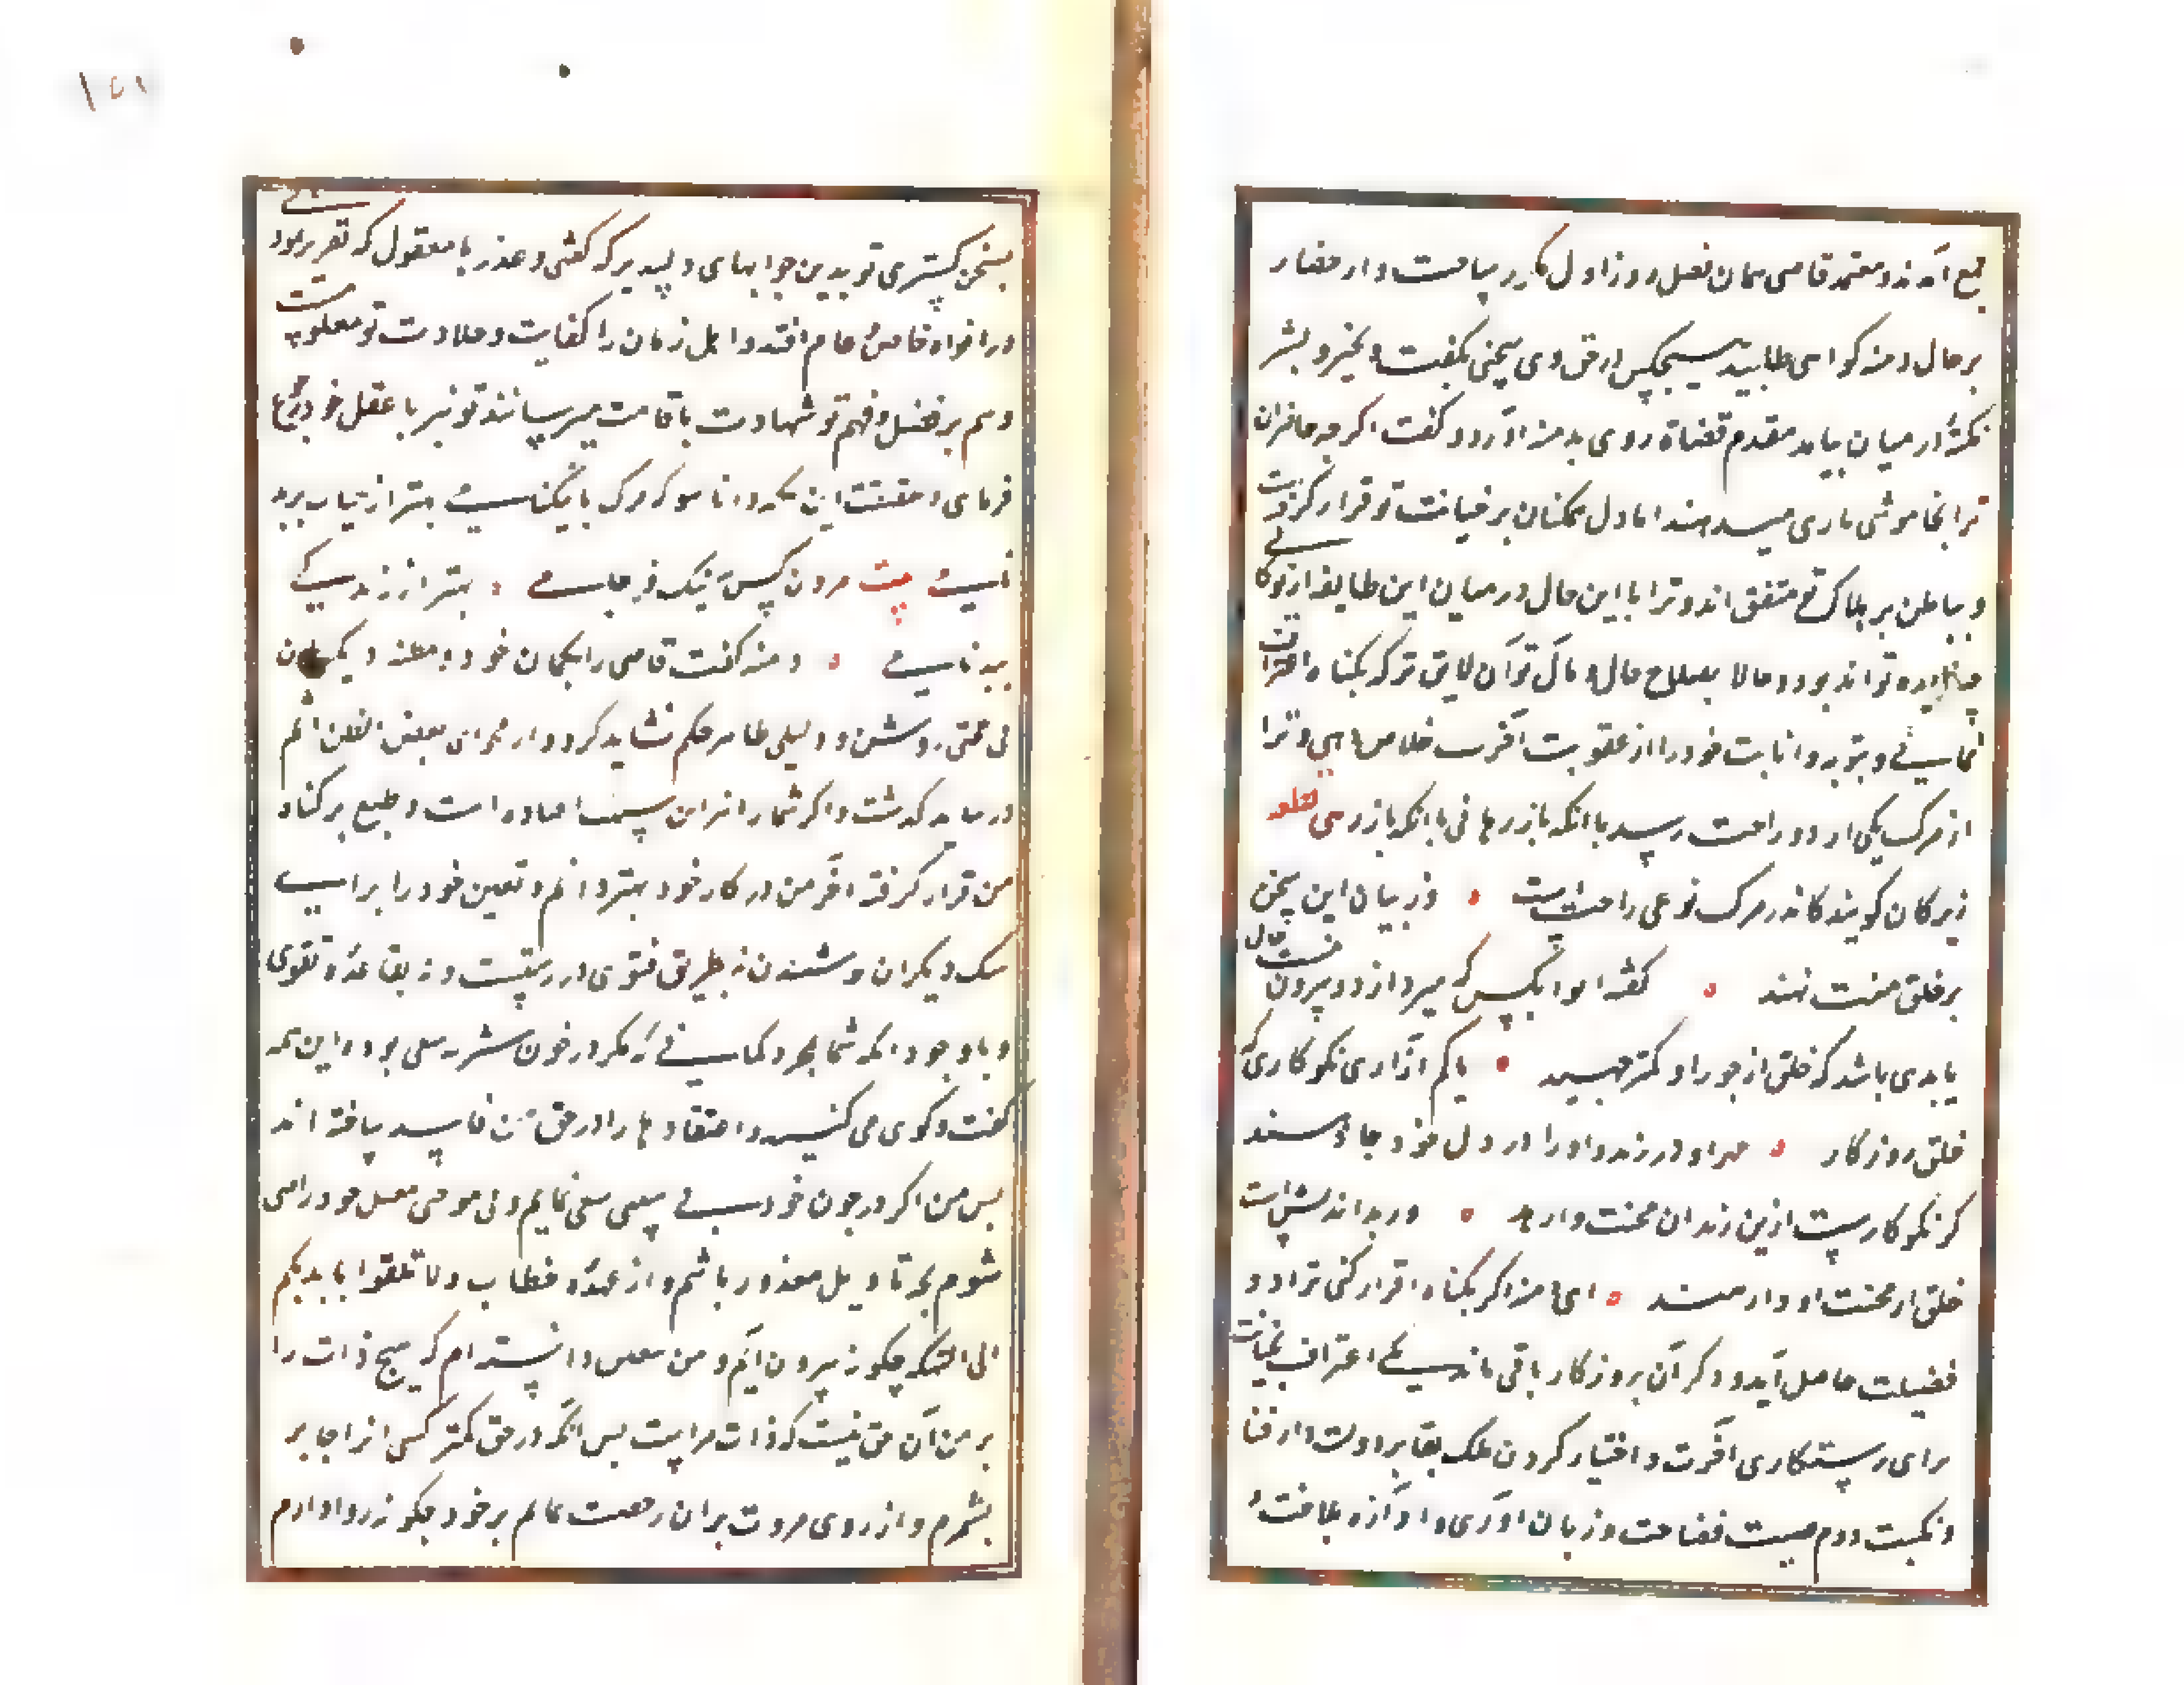 جمع آمدند و معتمد قاضی همان فصل روز اول مکرر ساخت و از حضار
بر حال دمنه گواهی طلبید هیچکس از حق وی سخنی نگفت و بخیر و بشر
نکته در میان نیامد مقدم قضاة روی بدمنه آورد و گفت اگر چه حاضران
ترا بخاموشی یاری میدهند اما دل همگنان بر خیانت تو قرار گرفته است
و بباطن بر هلاک تو متفق اند و ترا با این حال در میان این طایفه از زندگانی
چه فایده تواند بود و حالا بصلاح حال و مآل تو آن لایق تر که بگناه اعتراف
نمایی و بتوبه و انابت خود را از عقوبت آخرت خلاص دهی و ترا
از مرگ یکی از دو راحت رسد یا آنکه باز رهانی یا آنکه باز رهی قطعه
زیرکان گویند کاندر مرگ نوعی راحتست وز بیان این سخن
بر خلق منت نهند گفته اند آنکس که میرد از دو بیرون نیست حال
یا بدی باشد که خلق از جور او کمتر جهند یا کم آزاری نکوکاری که
خلق روزگار مهر او ورزند و او را در دل خود جا دهند
گر نکوکارست ازین زندان محنت وارهد ور بداندیش است
خلق از محنت او وارهند ای دمنه اگر بگناه اقرار کنی ترا دو
فضیلت حاصل آید و ذکر آن بروزگار باقی ماند یکی اعتراف بخیانت
برای رستکاری آخرت و اختیار کردن ملک بقا بر دولت دار فنا
و نکبت دوم صیت فصاحت و زبان آوری و آوازه بلاغت و
سخن گستری تو بدین جوابهای دلپذیر که گفتی و عذر با معقول که تقریر نمودی
در افواه خاص و عام افتد و اهل زمان را کفایت و جلادت تو معلوم شد
و هم بر فضل و فهم تو شهادت باقامت میرسانند تو نیز با عقل خود رجوع
فرمای و حقیقت این بدان که مرگ با نیکنامی بهتر از حیات بربد
نامی بیت مردن کس نیک فرجامی بهتر از زندگی
ببدنامی دمنه گفت قاضی را بگمان خود و مظنه دیگران
بی حجتی روشن و دلیلی ظاهر حکم نشاید کرد و از فحوای بعض الظن اثم
در نباید گذشت و اگر شما را نیز این شبهه افتاده است و طبع بر گناه
من قرار گرفته آخر من در کار خود بهتر دانم و یقین خود را برای
شک دیگران پوشیدن نه طریق فتوی درستست و نه بقاعده تقوی
و با وجود آنکه شما بمجرد گمانی که مگر در خون شتربه سعی بوده این همه
گفت و گوی می کنید و اعتقادها را در حق من فاسد یافته اند
پس من اگر در خون خود سببی سعی نمایم و بی موجبی بقتل خود راضی
شوم بچه تاویل معذور باشم و از عهده خطاب ولا تلقوا بایدیکم
الی التهلکة چگونه بیرون آیم و من یقین دانسته ام که هیچ ذات را
بر من آن حق نیست که ذات مراست پس آنکه در حق کمتر کسی از اجانب
بشمرم و از روی مروت بدان رخصت نمایم بر خود چگونه روا دارم
۱۵۱